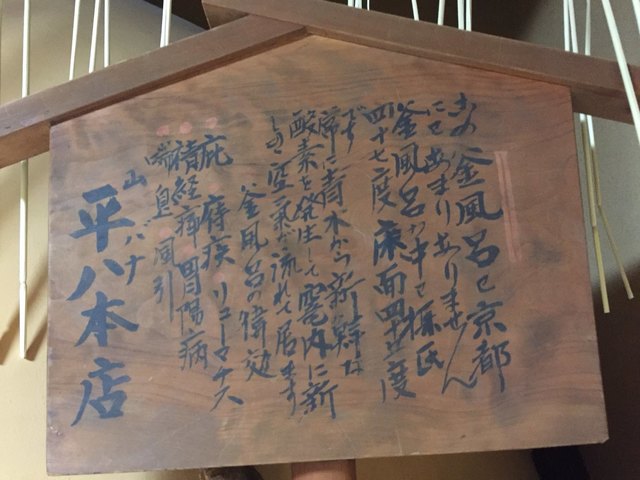 この釜風呂は京都
にもあまりありません
釜風呂の中は摂氏
四十七度 床面四十五度
です
常に青木から新鮮な
酸素を発生して窯内に新
しい空気が流れて居ます
釜風呂の偉効
痔疾 リユーマチス
積経痺 胃腸病
喘息 風引
山バナ
平八本店